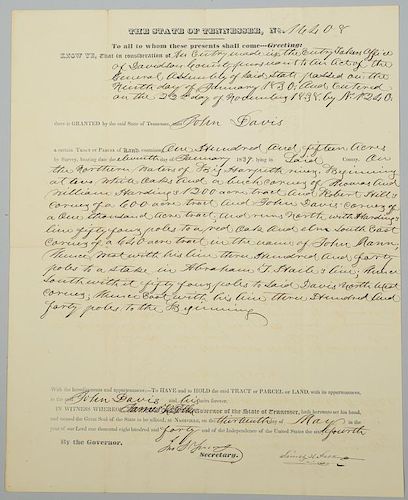 THE STATE OF TENNESSEE, No. 16408
To all to whom these presents shall come—Greeting:
KNOW YE, That in consideration of An Entry made in the Entry Takers Office
of Davidson County pursuant to an Act of the
General Assembly of said State passed on the
Ninth day of January 1830. And Entered
on the 22nd day of November 1838, by No. 1340
there is GRANTED by the said State of Tennessee, unto John Davis
a certain TRACT OR PARCEL OF LAND, containing One Hundred And fifteen Acres
by Survey, bearing date eleventh day of January 1839 lying in Said County. On
the Northern Waters of Big Harpeth river, Beginning
at two White Oaks and a birch corner of Thomas And
William Harding's 1200 acre tract And Robert Hill's
corner of a 600 acre tract and John Davis corner of
a One thousand acre tract, and runs North with Harding's
line fifty four poles to a red Oak And elm South East
corner of a 640 acre tract in the name of John Mann,
thence West with his line three Hundred And forty
poles to a Stake in Abraham T. Hail's line; thence
South with it fifty four poles to Said Davis North West
corner; thence East with his line three Hundred And
forty poles to the Beginning
With the hereditaments and appurtenances—To HAVE and to HOLD the said TRACT OR PARCEL OF LAND, with its appurtenances,
to the said John Davis and his heirs forever.
IN WITNESS WHEREOF, James K. Polk Governor of the State of Tennessee, hath hereunto set his hand,
and caused the Great Seal of the State to be affixed, at NASHVILLE, on the thirteenth day of May in the
year of our Lord one thousand eight hundred and forty and of the Independence of the United States the sixty fourth
By the Governor.
James K. Polk
Secretary.